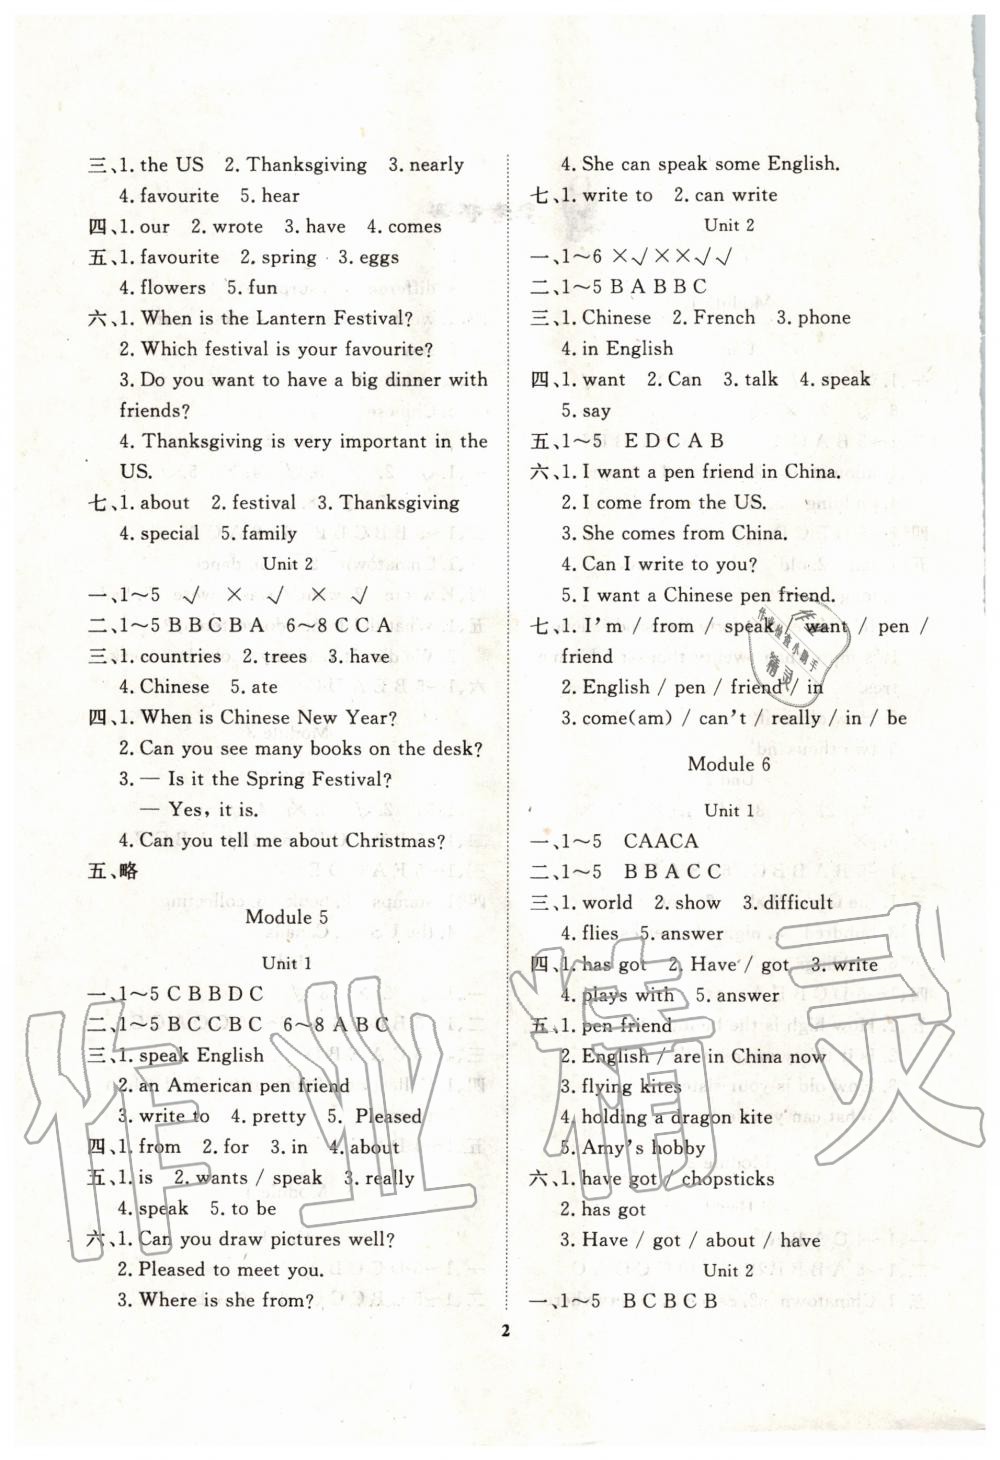 三、1. the US  2. Thanksgiving  3. nearly
4. favourite  5. hear
四、1. our  2. wrote  3. have  4. comes
五、1. favourite  2. spring  3. eggs
4. flowers  5. fun
六、1. When is the Lantern Festival?
2. Which festival is your favourite?
3. Do you want to have a big dinner with
friends?
4. Thanksgiving is very important in the
US.
七、1. about  2. festival  3. Thanksgiving
4. special  5. family
Unit 2
一、1～5  √  ×  √  ×  √
二、1～5 B B C B A  6～8 C C A
三、1. countries  2. trees  3. have
4. Chinese  5. ate
四、1. When is Chinese New Year?
2. Can you see many books on the desk?
3. — Is it the Spring Festival?
— Yes, it is.
4. Can you tell me about Christmas?
五、略
Module 5
Unit 1
一、1～5 C B B D C
二、1～5 B C C B C  6～8 A B C
三、1. speak English
2. an American pen friend
3. write to  4. pretty  5. Pleased
四、1. from  2. for  3. in  4. about
五、1. is  2. wants / speak  3. really
4. speak  5. to be
六、1. Can you draw pictures well?
2. Pleased to meet you.
3. Where is she from?
4. She can speak some English.
七、1. write to  2. can write
Unit 2
一、1～6 × √ × × √ √
二、1～5 B A B B C
三、1. Chinese  2. French  3. phone
4. in English
四、1. want  2. Can  3. talk  4. speak
5. say
五、1～5  E D C A B
六、1. I want a pen friend in China.
2. I come from the US.
3. She comes from China.
4. Can I write to you?
5. I want a Chinese pen friend.
七、1. I'm / from / speak / want / pen /
friend
2. English / pen / friend / in
3. come(am) / can't / really / in / be
Module 6
Unit 1
一、1～5  CAACA
二、1～5  B B A C C
三、1. world  2. show  3. difficult
4. flies  5. answer
四、1. has got  2. Have / got  3. write
4. plays with  5. answer
五、1. pen friend
2. English / are in China now
3. flying kites
4. holding a dragon kite
5. Amy's hobby
六、1. have got / chopsticks
2. has got
3. Have / got / about / have
Unit 2
一、1～5  B C B C B
2
作业精灵